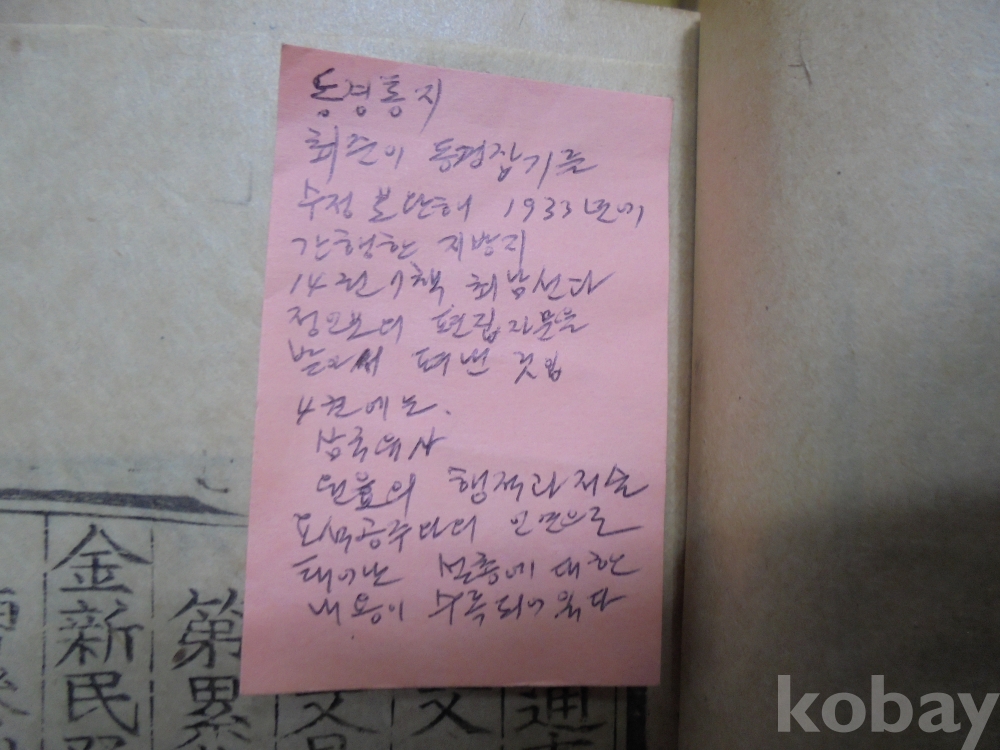 동경통지
최준이 동경잡기를
수정 보단해 1933년에
간행한 지방지
14권 7책 최남선과
정인보의 편집자문을
받아서 펴낸 것임
4권에는.
삼국유사
원효의 행적과 저술
요석공주과의 인연으로
태어난 설총에 대한
내용이 수록되어 있다
金新民
第累
文
文
通
kobay